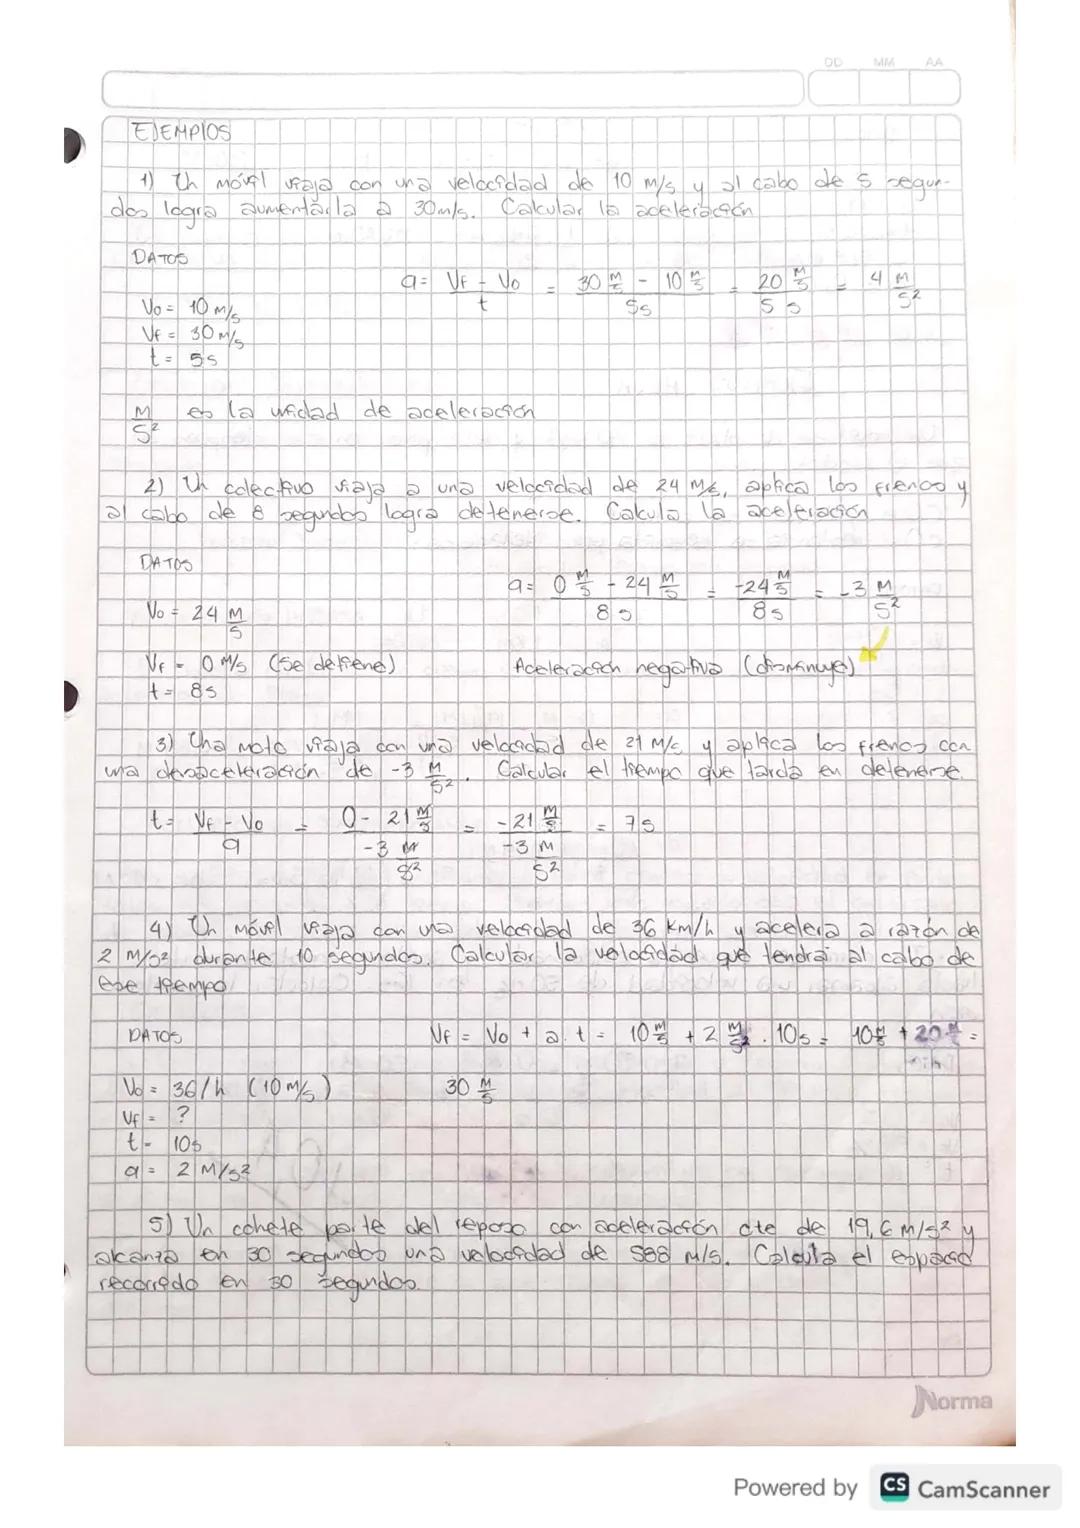 DD MM AA
EJEMPlOS
1) Un móvil viaja con una velocidad de 10 m/s y al cabo de 5 segun-
dos logra aumentarla a 30m/s. Calcular la aceleración
DATOS
a = Vf - Vo / t = 30 M/s - 10 M/s / 5s = 20 M/s / 5 s = 4 M/s²
Vo = 10 m/s
Vf = 30 M/s
t = 5s
M/s² es la unidad de aceleración
2) Un colectivo viaja a una velocidad de 24 M/s, aplica los frenos y
al cabo de 8 segundos logra detenerse. Calcula la aceleración
DATOS
a = 0 M/s - 24 M/s / 8 s = -24 M/s / 8s = -3 M/s²
Vo = 24 M/s
Vf = 0 M/s (Se detiene) Aceleración negativa (disminuye)
t = 8s
3) Una moto viaja con una velocidad de 21 M/s y aplica los frenos con
una desaceleración de -3 M/s². Calcular el tiempo que tarda en detenerse.
t = Vf - Vo / a = 0 - 21 M/s / -3 M/s² = -21 M/s / -3 M/s² = 7s
4) Un móvil viaja con una velocidad de 36 Km/h y acelera a razón de
2 M/s² durante 10 segundos. Calcular la velocidad que tendrá al cabo de
ese tiempo
DATOS Vf = Vo + a . t = 10 M/s + 2 M/s² . 10s = 10 M/s + 20 M/s =
Vo = 36/h (10 M/s) 30 M/s
Vf = ?
t = 10s
a = 2 M/s²
5) Un cohete parte del reposo con aceleración cte de 19,6 m/s² y
alcanza en 30 segundos una velocidad de 588 m/s. Calcula el espacio
recorrido en 30 segundos.
Norma
Powered by CS CamScanner